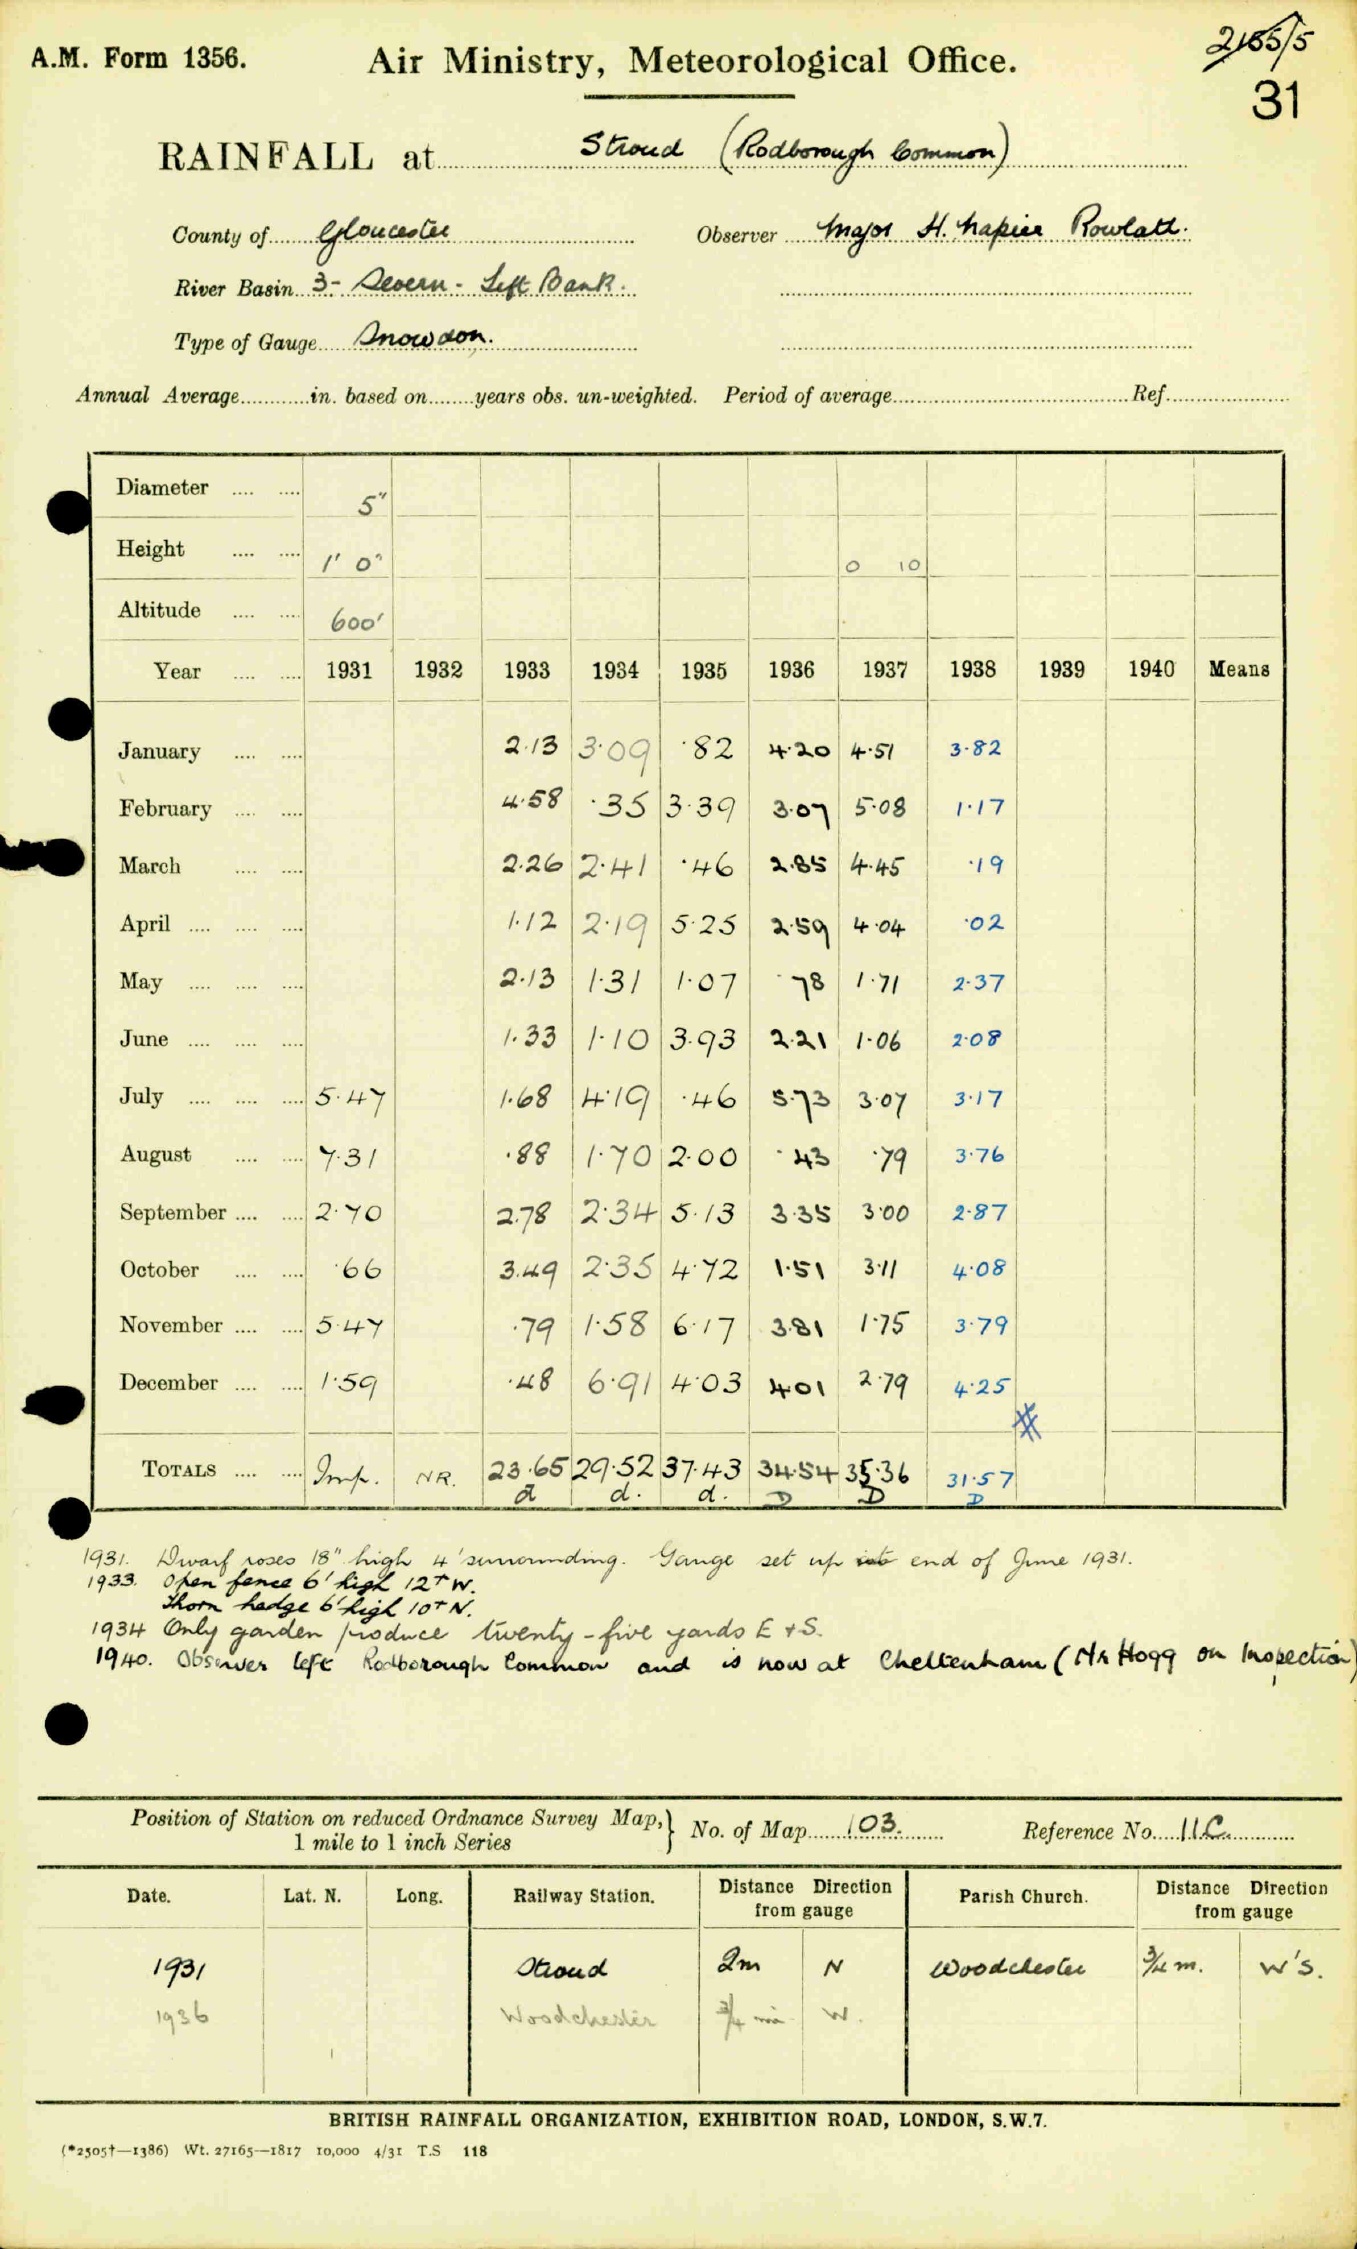 A.M. Form 1356. Air Ministry, Meteorological Office. 2155/5
31
RAINFALL at Stroud (Rodborough Common)
County of Gloucester Observer Major H. Napier Rowlatt.
River Basin 3- Severn - Left Bank.
Type of Gauge Snowdon.
Annual Average in. based on years obs. un-weighted. Period of average Ref.
Diameter 5"
Height 1' 0" 0 10
Altitude 600'
Year 1931 1932 1933 1934 1935 1936 1937 1938 1939 1940 Means
January 2.13 3.09 .82 4.20 4.51 3.82
February 4.58 .35 3.39 3.07 5.08 1.17
March 2.26 2.41 .46 2.85 4.45 .19
April 1.12 2.19 5.25 2.59 4.04 .02
May 2.13 1.31 1.07 .78 1.71 2.37
June 1.33 1.10 3.93 2.21 1.06 2.08
July 5.47 1.68 4.19 .46 5.73 3.07 3.17
August 7.31 .88 1.70 2.00 .43 .79 3.76
September 2.70 2.78 2.34 5.13 3.35 3.00 2.87
October .66 3.49 2.35 4.72 1.51 3.11 4.08
November 5.47 .79 1.58 6.17 3.81 1.75 3.79
December 1.59 .48 6.91 4.03 4.01 2.79 4.25
#
TOTALS Imp. NR. 23.65 29.52 37.43 34.54 35.36 31.57
d d. d. D D D
1931. Dwarf roses 18" high 4' surrounding. Gauge set up end of June 1931.
1933. Open fence 6' high 12+ W.
Thorn hedge 6' high 10+ N.
1934 Only garden produce twenty-five yards E + S.
1940. Observer left Rodborough Common and is now at Cheltenham (Mr Hogg on Inspection)
Position of Station on reduced Ordnance Survey Map,} No. of Map 103. Reference No. 11C.
1 mile to 1 inch Series
Date. Lat. N. Long. Railway Station. Distance Direction from gauge Parish Church. Distance Direction from gauge
1931 Stroud 2m N Woodchester 3/4 m. W'S.
1936 Woodchester 3/4 mi W.
BRITISH RAINFALL ORGANIZATION, EXHIBITION ROAD, LONDON, S.W.7.
(*2505†—1386) Wt. 27165—1817 10,000 4/31 T.S 118